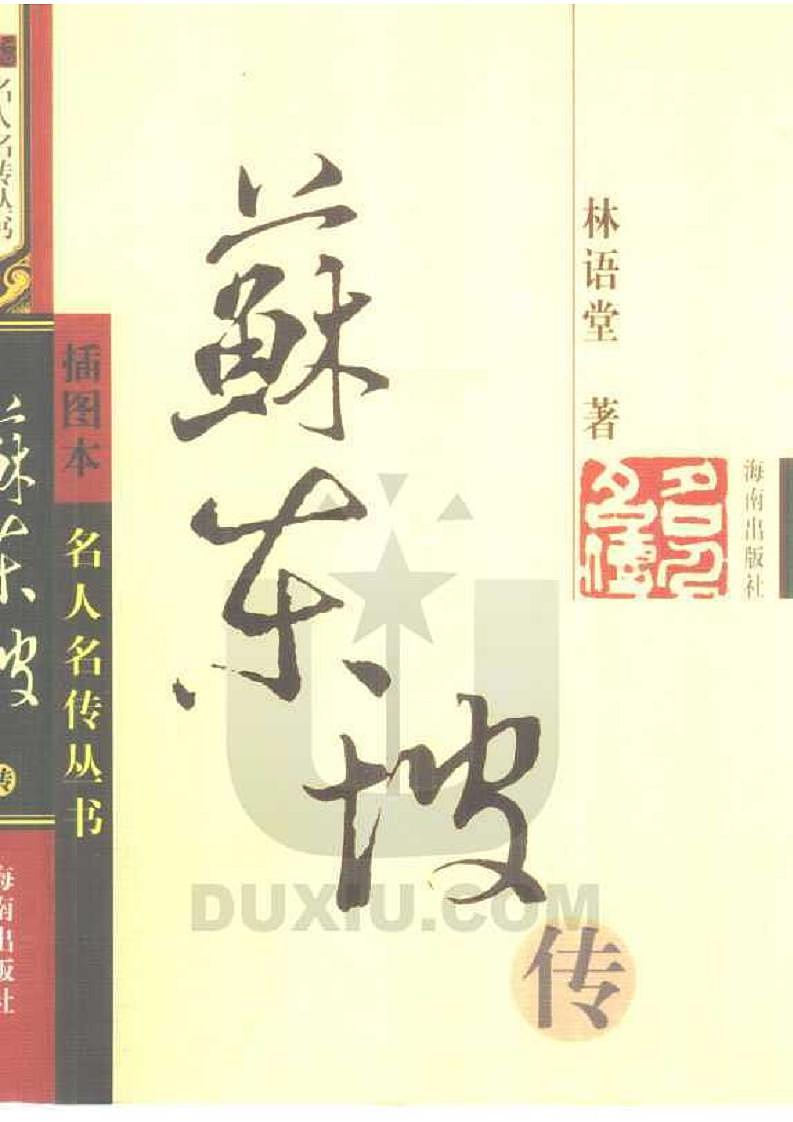 林语堂 著
海南出版社
名人名传
蘇东坡
传
插图本
名人名传丛书
名人名传丛书
蘇东坡
传
海南出版社
DUXIU.COM